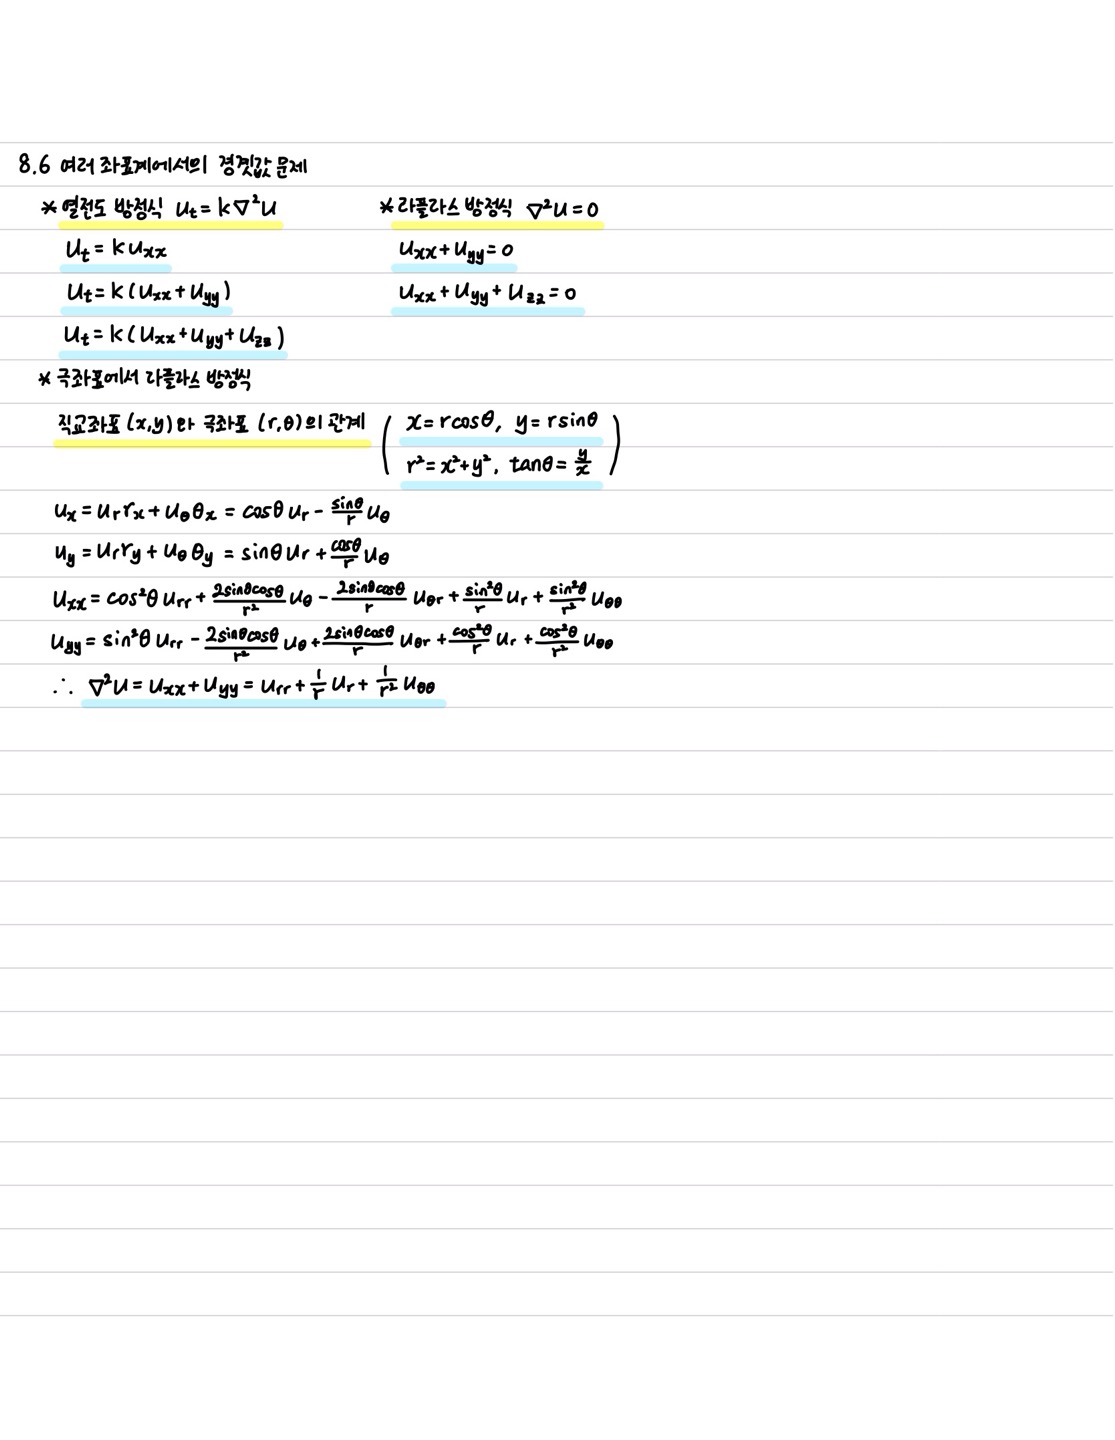 8.6 여러 좌표계에서의 경곗값 문제
* 열전도 방정식 u_t = k∇²u
* 라플라스 방정식 ∇²u = 0
u_t = k u_xx
u_xx + u_yy = 0
u_t = k(u_xx + u_yy)
u_xx + u_yy + u_zz = 0
u_t = k(u_xx + u_yy + u_zz)
* 극좌표에서 라플라스 방정식
직교좌표 (x,y)와 극좌표 (r,θ)의 관계
(x = rcosθ, y = rsinθ
r² = x² + y², tanθ = y/x)
u_x = u_r r_x + u_θ θ_x = cosθ u_r - sinθ/r u_θ
u_y = u_r r_y + u_θ θ_y = sinθ u_r + cosθ/r u_θ
u_xx = cos²θ u_rr + 2sinθcosθ/r² u_θ - 2sinθcosθ/r u_θr + sin²θ/r u_r + sin²θ/r² u_θθ
u_yy = sin²θ u_rr - 2sinθcosθ/r² u_θ + 2sinθcosθ/r u_θr + cos²θ/r u_r + cos²θ/r² u_θθ
∴ ∇²u = u_xx + u_yy = u_rr + 1/r u_r + 1/r² u_θθ